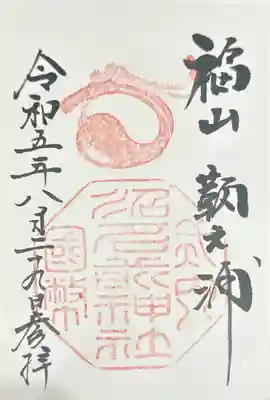 福山 鞆之浦
沼名前神社
國幣
令和五年八月二十九日参拝